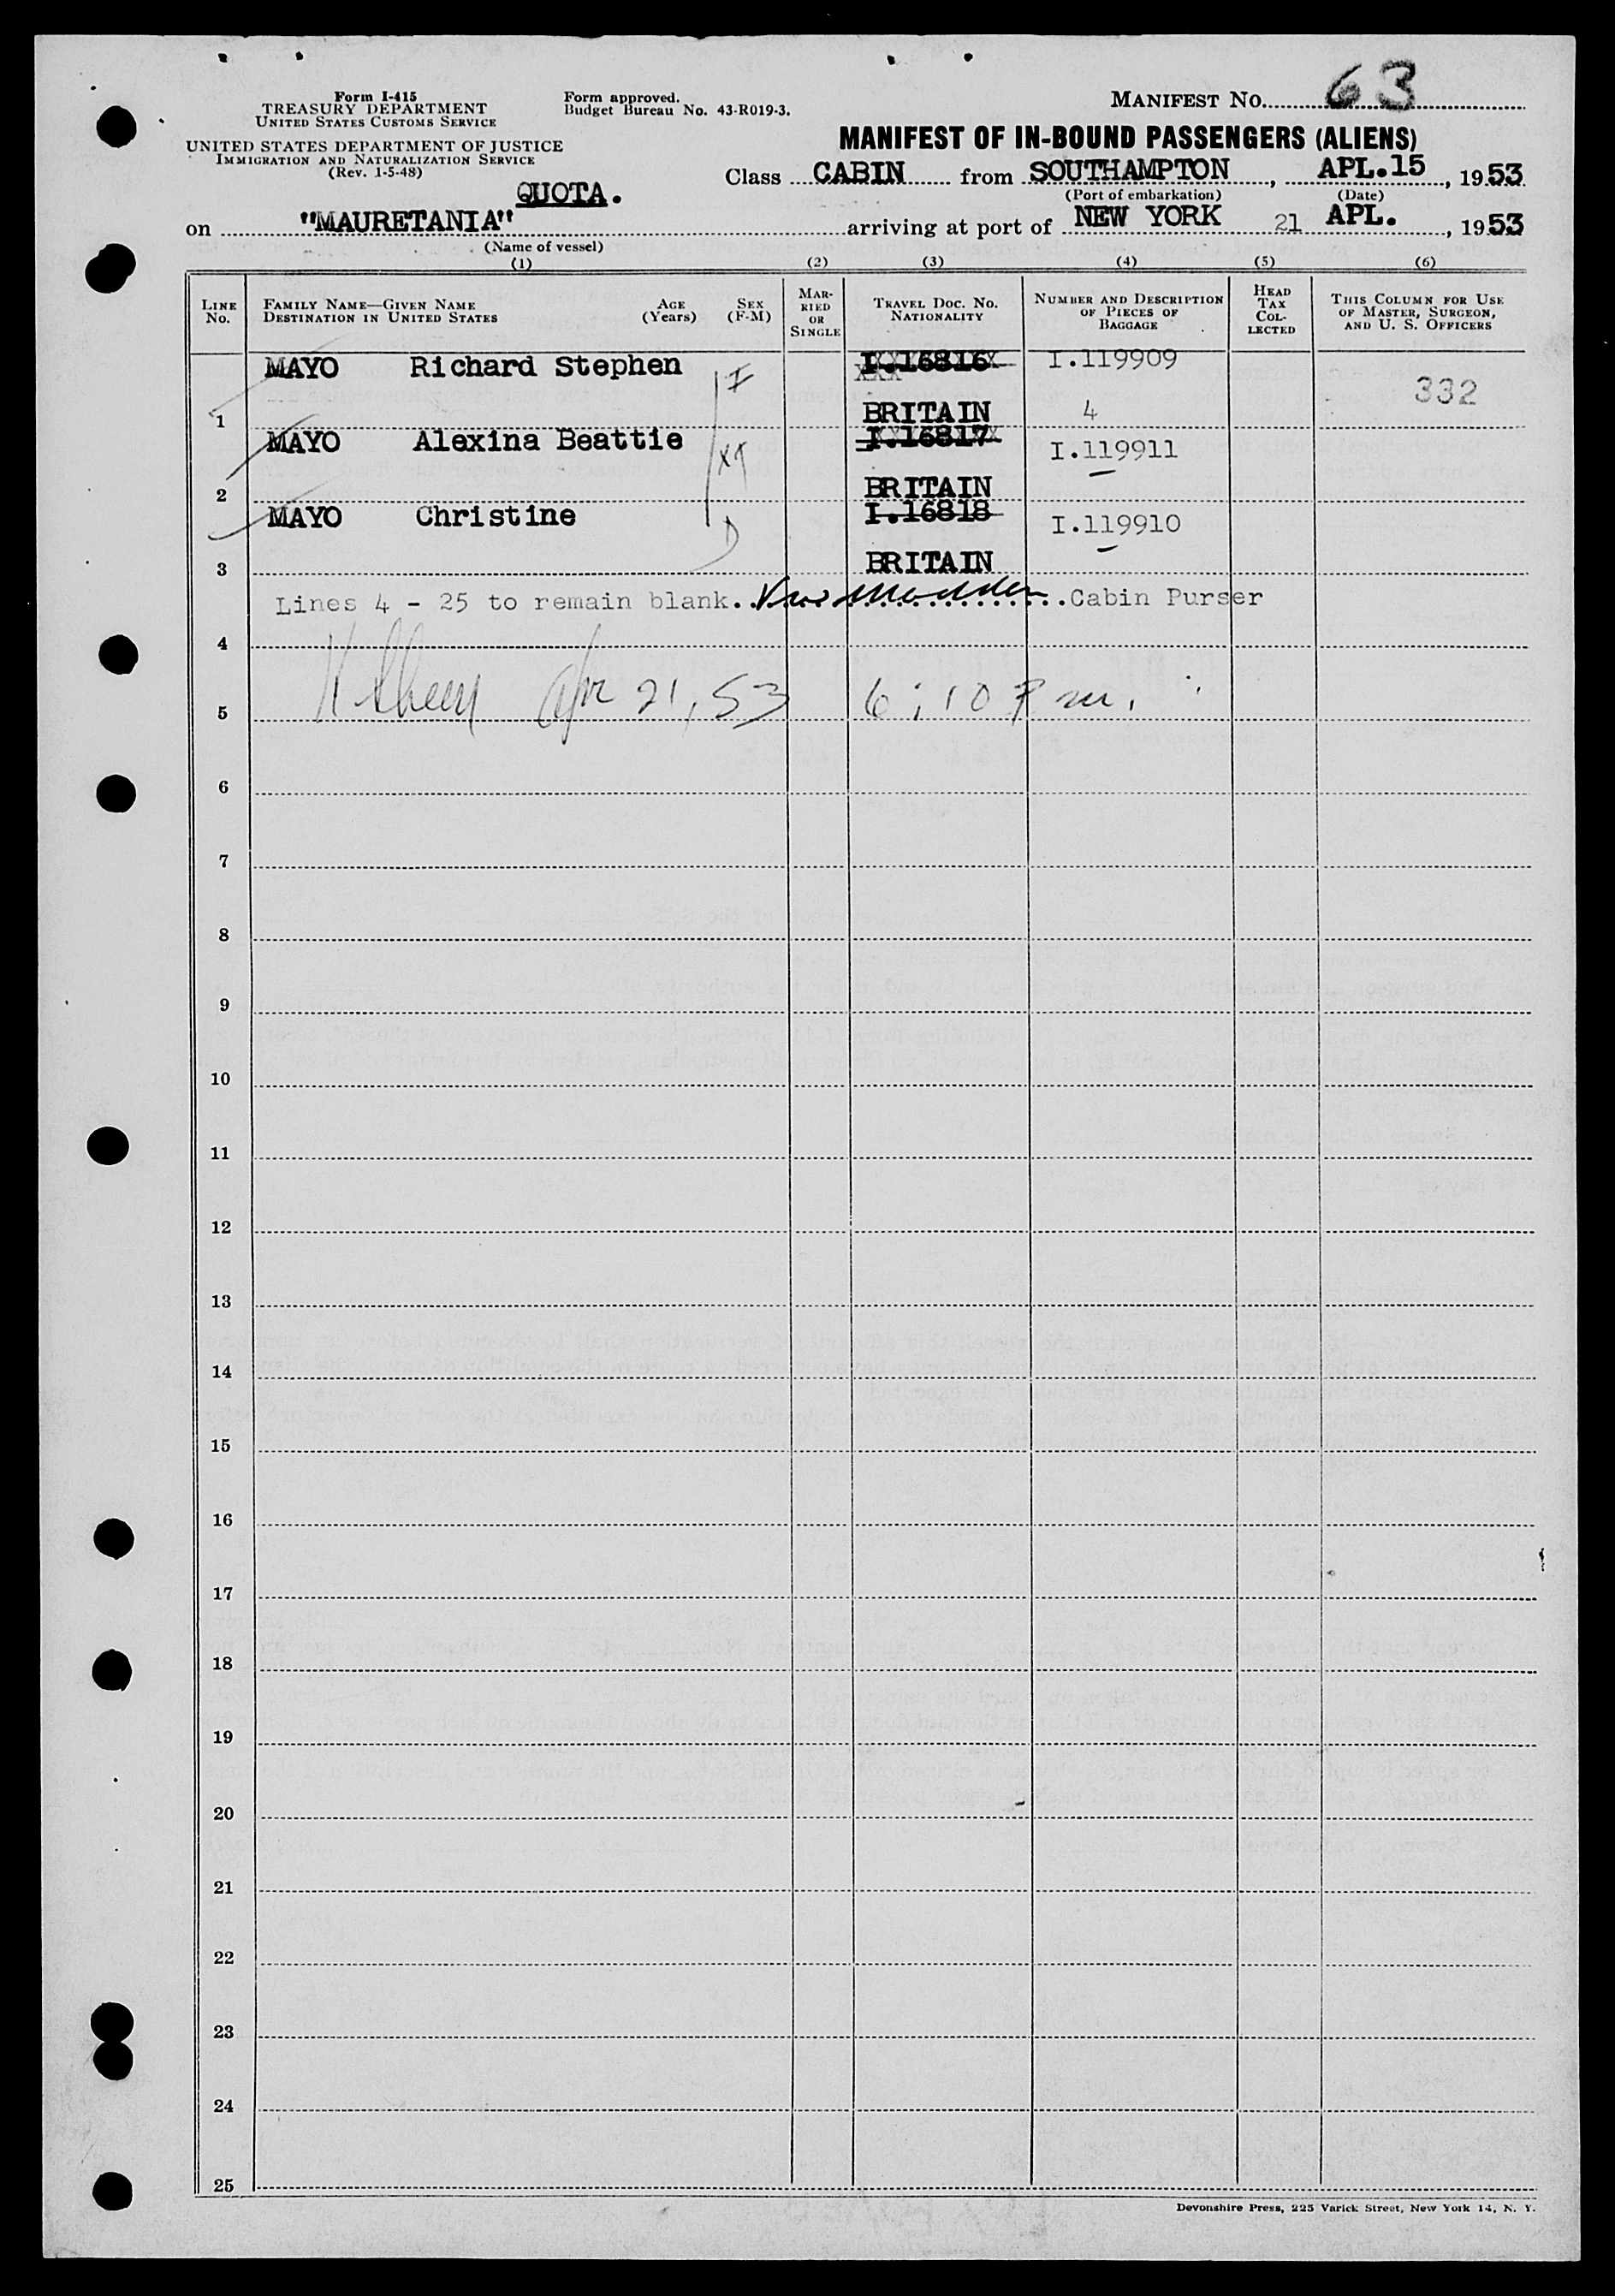 Form I-415
TREASURY DEPARTMENT
UNITED STATES CUSTOMS SERVICE
UNITED STATES DEPARTMENT OF JUSTICE
IMMIGRATION AND NATURALIZATION SERVICE
(Rev. 1-5-48)
Form approved.
Budget Bureau No. 43-R019-3.
MANIFEST NO. 63
MANIFEST OF IN-BOUND PASSENGERS (ALIENS)
Class CABIN from SOUTHAMPTON, APL.15, 1953
(Port of embarkation) (Date)
QUOTA.
on "MAURETANIA" arriving at port of NEW YORK 21 APL., 1953
(Name of vessel)
(1) (2) (3) (4) (5) (6)
LINE No. FAMILY NAME—GIVEN NAME DESTINATION IN UNITED STATES AGE (Years) SEX (F-M) MARRIED OR SINGLE TRAVEL DOC. NO. NATIONALITY NUMBER AND DESCRIPTION OF PIECES OF BAGGAGE HEAD TAX COLLECTED THIS COLUMN FOR USE OF MASTER, SURGEON, AND U. S. OFFICERS
MAYO Richard Stephen I.16816 I.119909
332
1 BRITAIN 4
MAYO Alexina Beattie I.16817 I.119911
2 BRITAIN
MAYO Christine I.16818 I.119910
3 BRITAIN
Lines 4 - 25 to remain blank. Cabin Purser
4
5 Apr 21, 53 6:10 Pm.
6
7
8
9
10
11
12
13
14
15
16
17
18
19
20
21
22
23
24
25
Devonshire Press, 225 Varick Street, New York 14, N. Y.